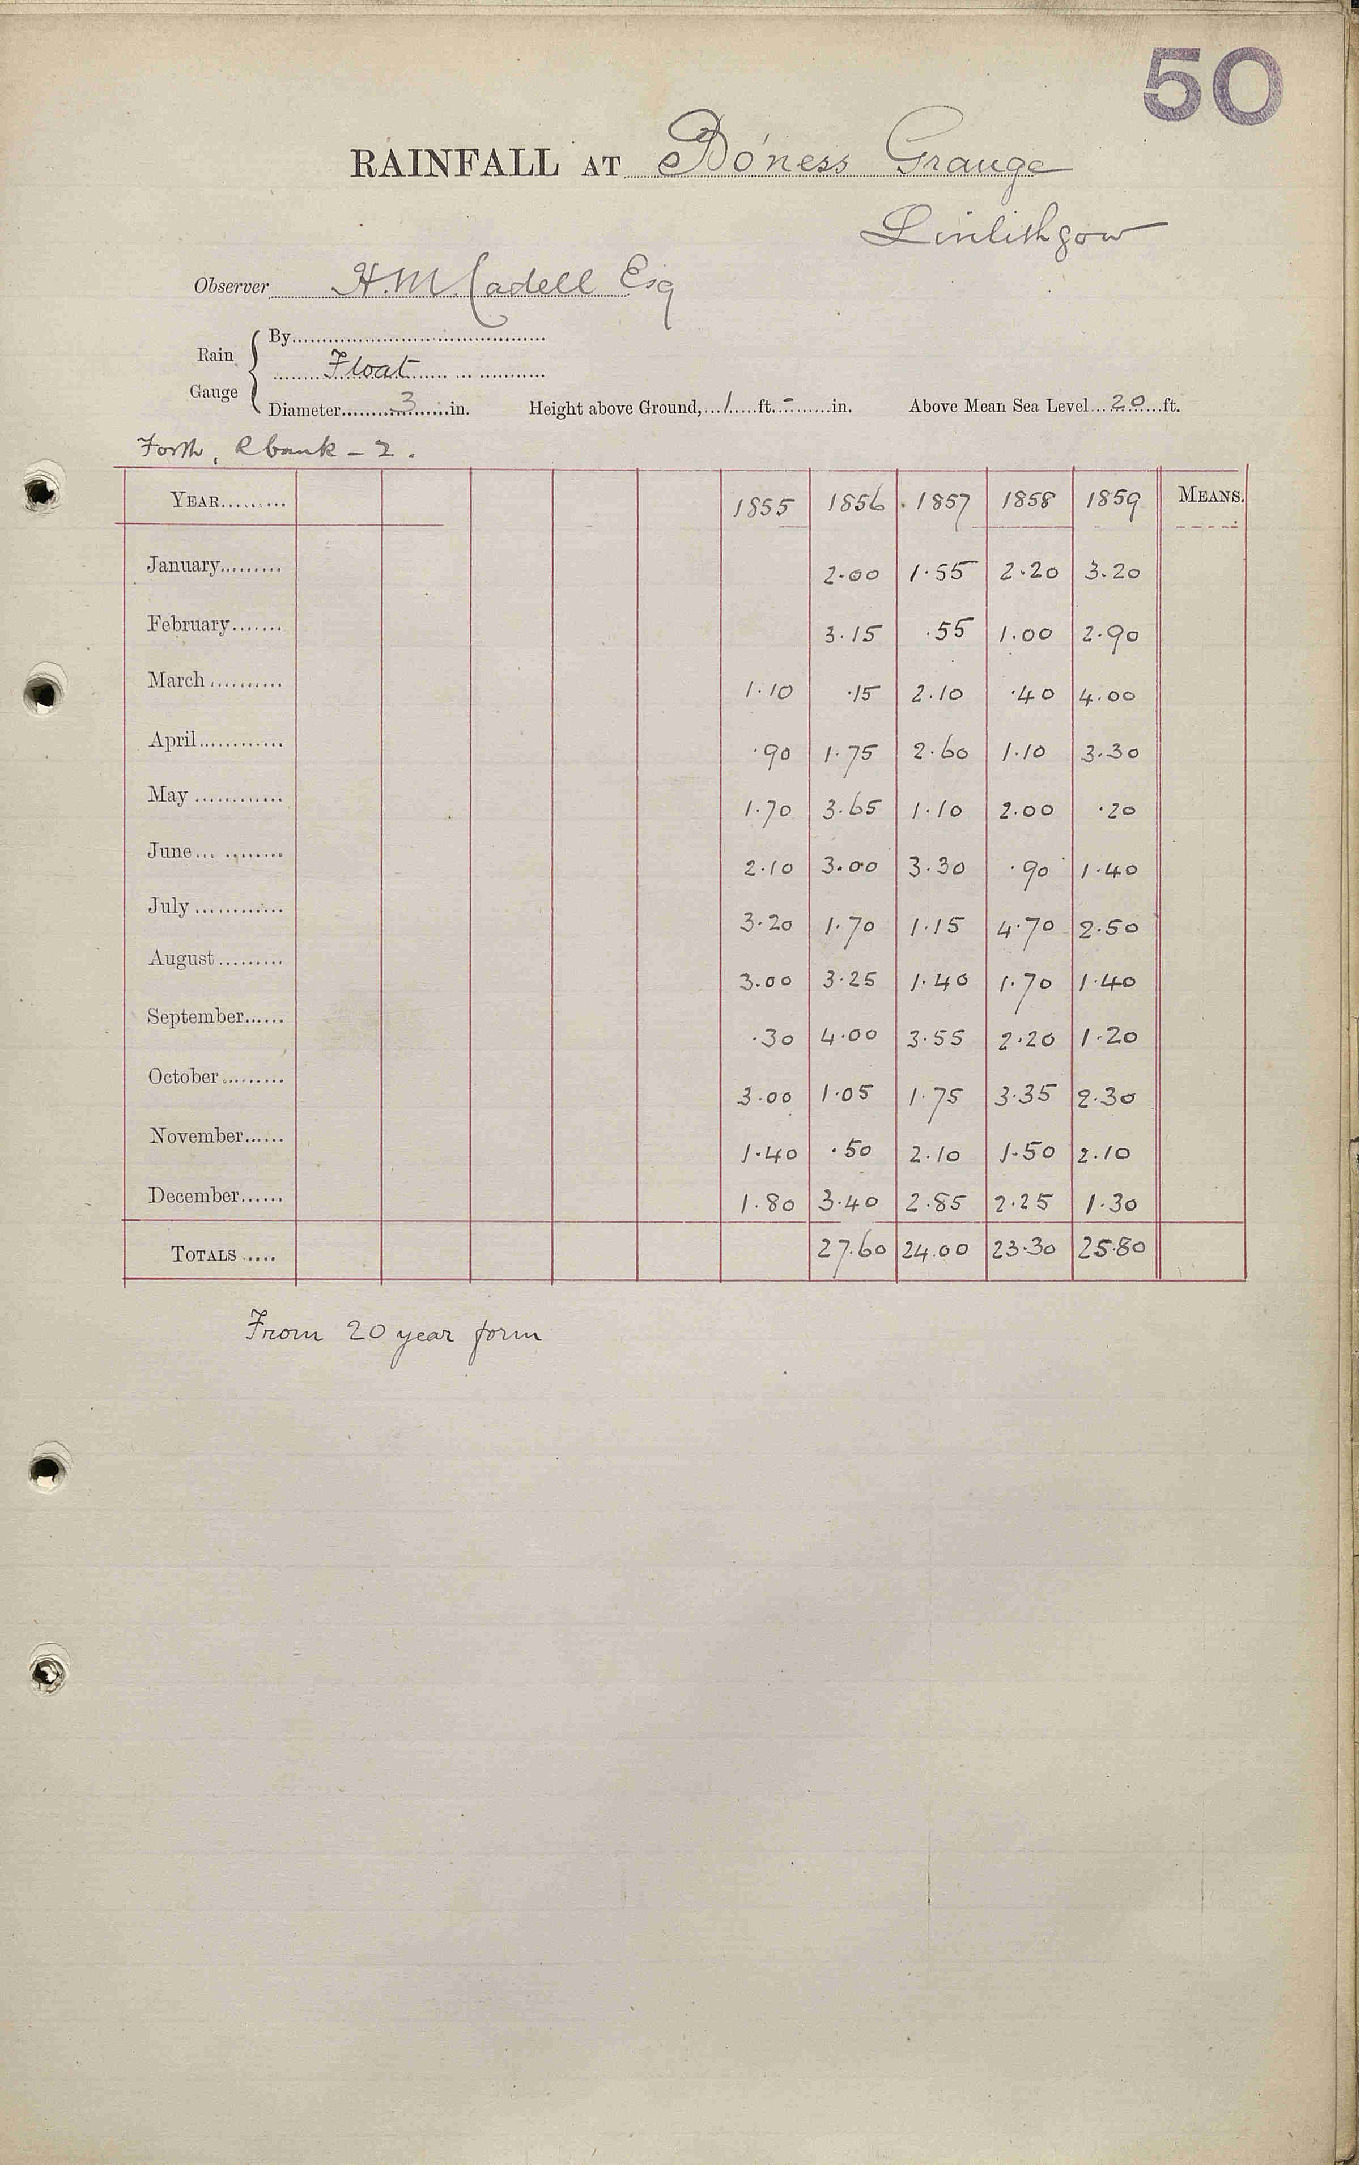 50
RAINFALL AT Bo'ness Grange
Linlithgow
Observer H.M. Cadell Esq
Rain Gauge
By
Float
Diameter 3 in. Height above Ground, 1 ft. - in. Above Mean Sea Level 20 ft.
Forth, R bank - 2.
YEAR 1855 1856 1857 1858 1859 MEANS.
January 2.00 1.55 2.20 3.20
February 3.15 .55 1.00 2.90
March 1.10 .15 2.10 .40 4.00
April .90 1.75 2.60 1.10 3.30
May 1.70 3.65 1.10 2.00 .20
June 2.10 3.00 3.30 .90 1.40
July 3.20 1.70 1.15 4.70 2.50
August 3.00 3.25 1.40 1.70 1.40
September .30 4.00 3.55 2.20 1.20
October 3.00 1.05 1.75 3.35 2.30
November 1.40 .50 2.10 1.50 2.10
December 1.80 3.40 2.85 2.25 1.30
TOTALS 27.60 24.00 23.30 25.80
From 20 year form